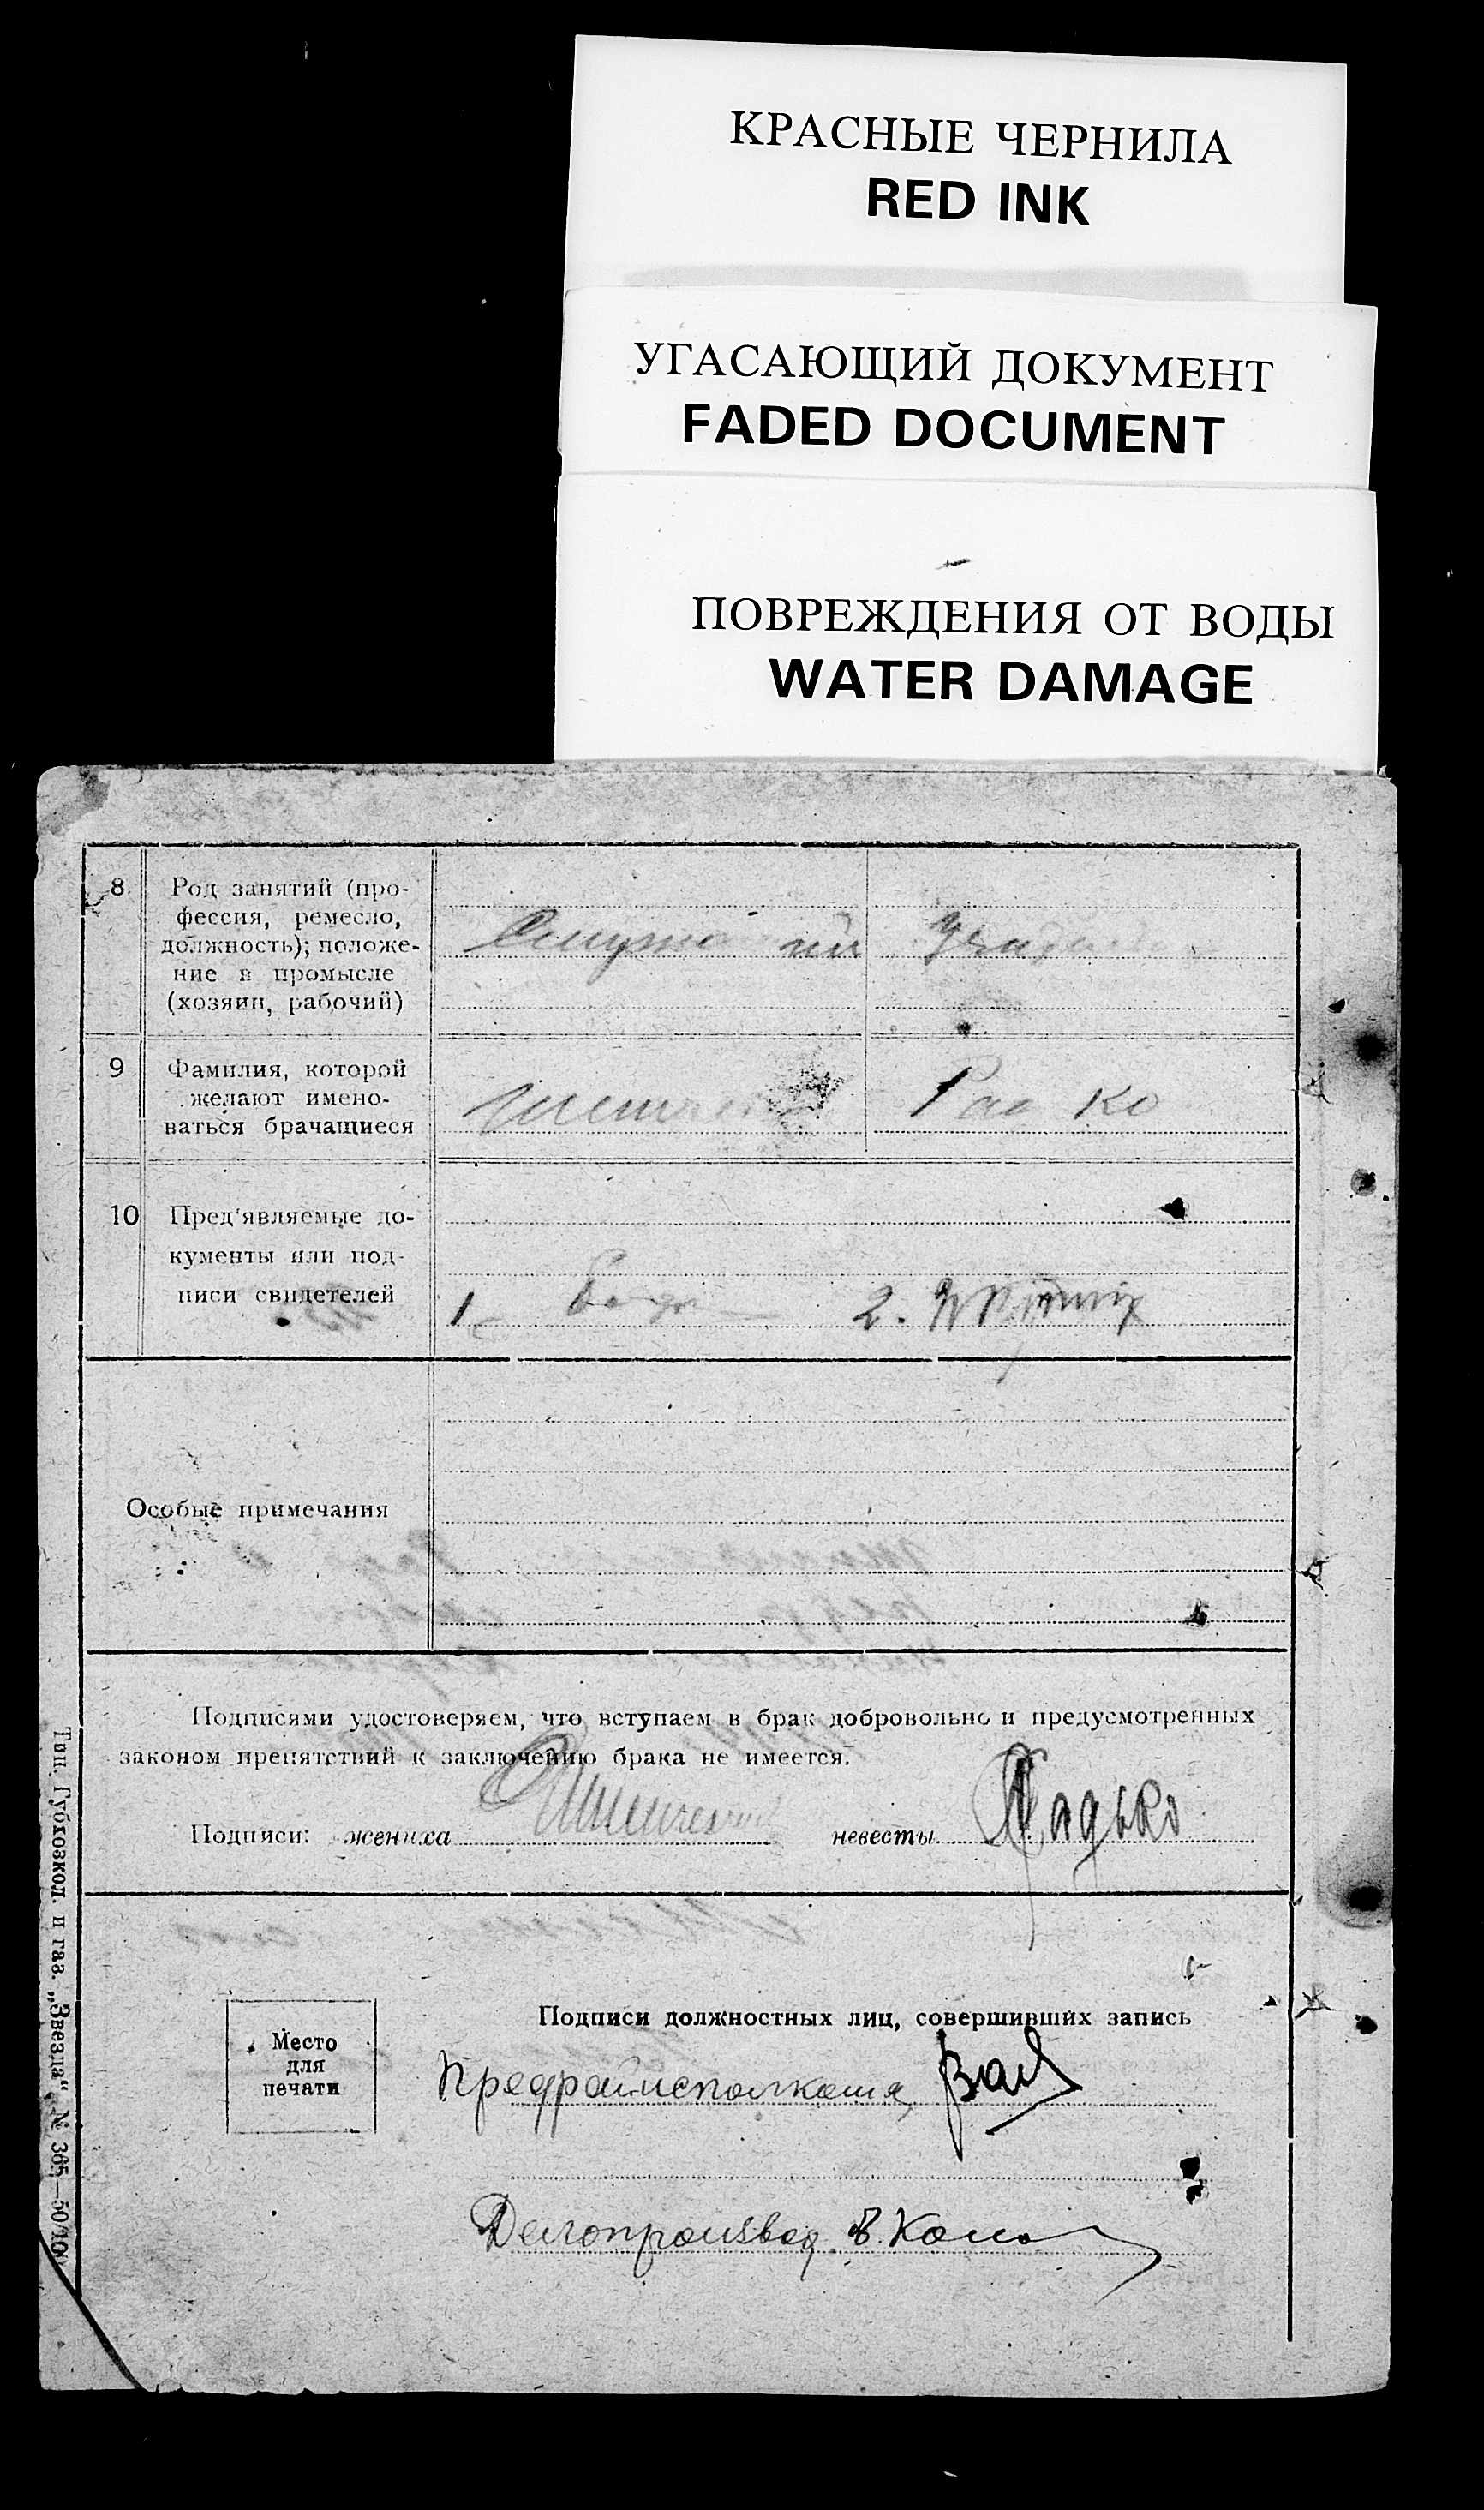 КРАСНЫЕ ЧЕРНИЛА
RED INK
УГАСАЮЩИЙ ДОКУМЕНТ
FADED DOCUMENT
ПОВРЕЖДЕНИЯ ОТ ВОДЫ
WATER DAMAGE
8
Род занятий (про-
фессия, ремесло,
должность); положе-
ние в промысле
(хозяин, рабочий)
9
Фамилия, которой
желают имено-
ваться брачащиеся
10
Пред'являемые до-
кументы или под-
писи свидетелей
1
2.
Особые примечания
Подписями удостоверяем, что вступаем в брак добровольно и предусмотренных
законом препятствий к заключению брака не имеется.
Подписи: жениха невесты Радько
Место
для
печати
Подписи должностных лиц, совершивших запись
Предрайисполкома
Делопроизвод.
Тип. Губхозкол. и газ. „Звезда“ № 365—50/10